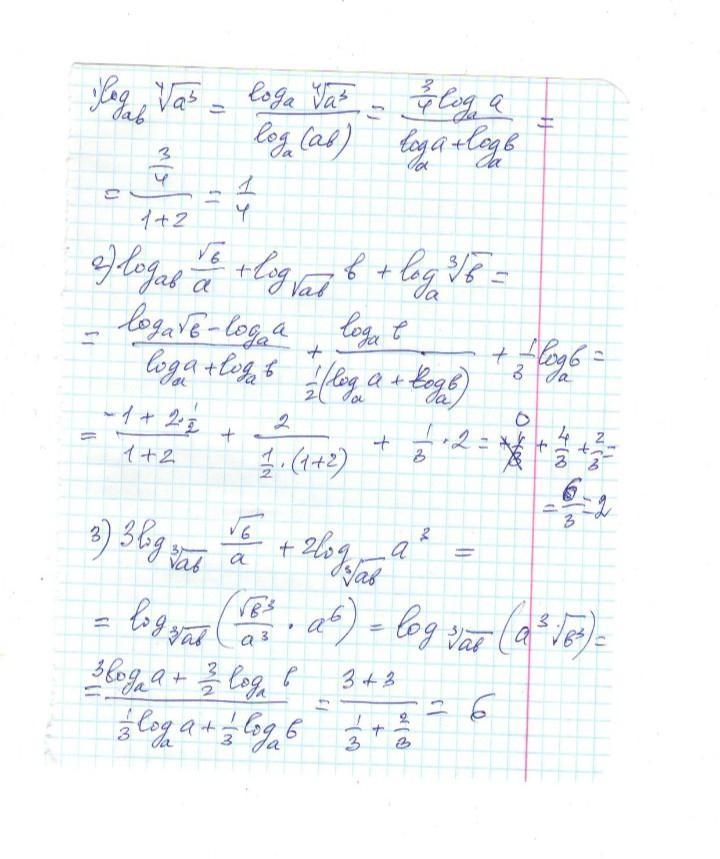 1) log_ab ⁴√a³ = log_a ⁴√a³ / log_a (ab) = 3/4 log_a a / log_a a + log_a b =
= 3/4 / 1+2 = 1/4
2) log_ab √b/a + log_√ab b + log_a ³√b =
= log_a √b - log_a a / log_a a + log_a b + log_a b / 1/2 (log_a a + log_a b) + 1/3 log_a b =
= -1 + 2·1/2 / 1+2 + 2 / 1/2·(1+2) + 1/3 · 2 = 0 + 4/3 + 2/3 =
= 6/3 = 2
3) 3log_³√ab √b/a + 2log_³√ab a³ =
= log_³√ab (√b³/a³ · a⁶) = log_³√ab (a³ · √b³) =
= 3log_a a + 3/2 log_a b / 1/3 log_a a + 1/3 log_a b = 3+3 / 1/3 + 2/3 = 6